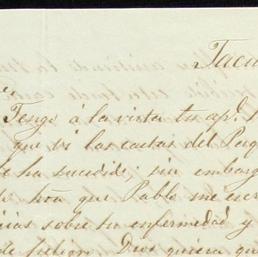 Tacu
Tengo á la vista tu ap.
que vi las cartas del Paq
ha sucedido; sin embarg
hoa que Pablo me escri
cias sobre tu enfermedad y
de peligro. Dios quiera qu